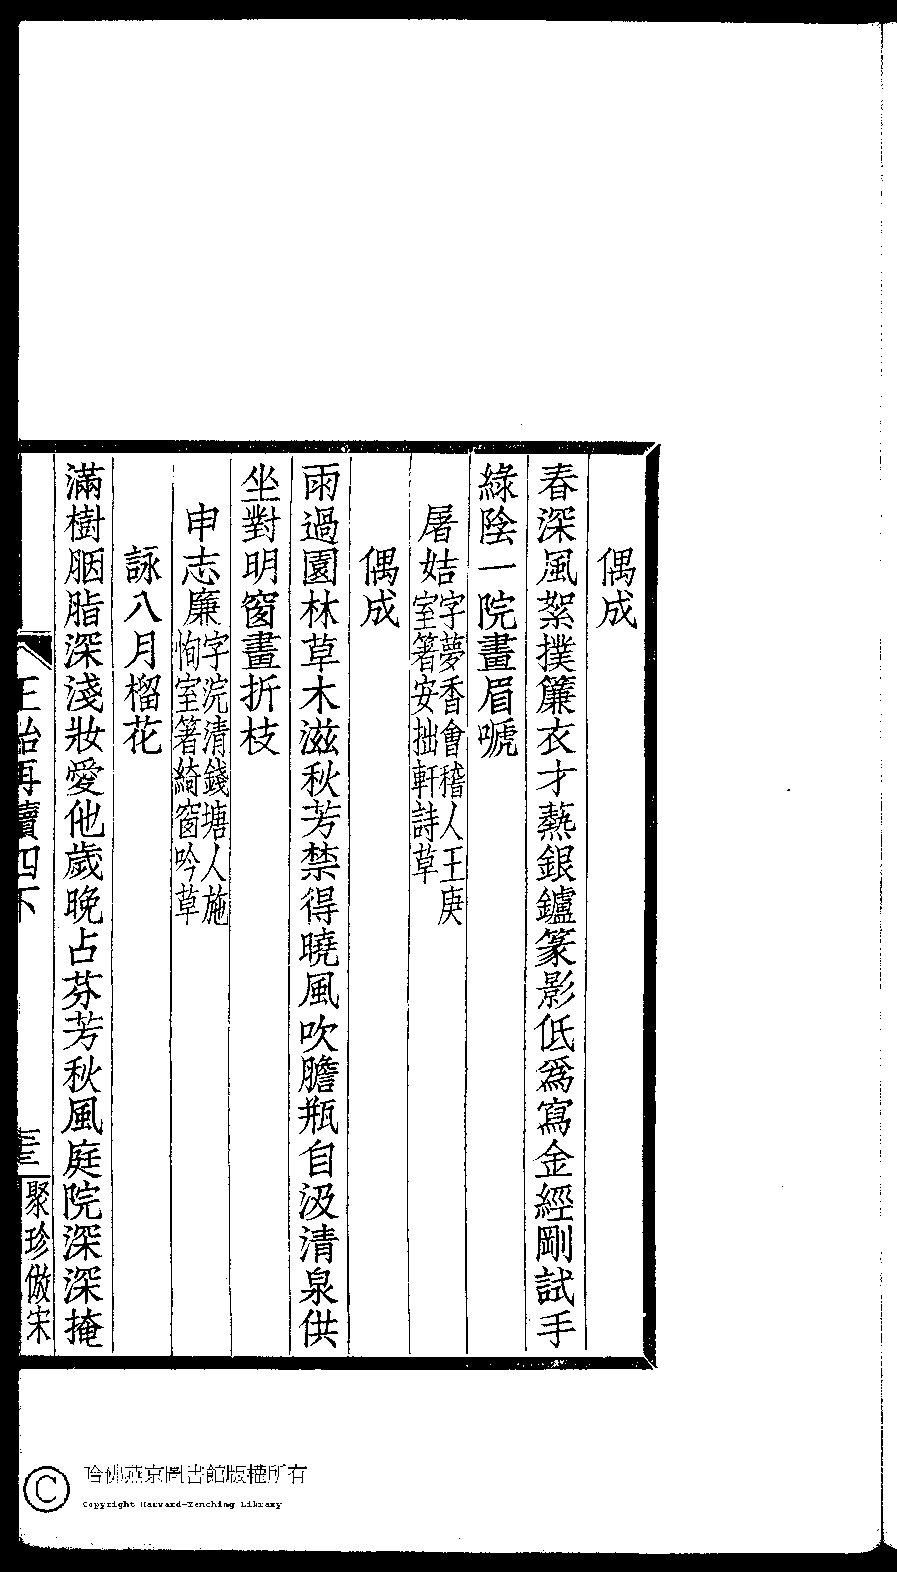 偶成
春深風絮撲簾衣才爇銀鑪篆影低為寫金經剛試手
綠陰一院畫眉嗁
屠姞字夢香會稽人王庚
室箸安拙軒詩草
偶成
雨過園林草木滋秋芳禁得曉風吹膽瓶自汲清泉供
坐對明窗畫折枝
申志廉字浣清錢塘人施
恂室箸綺窗吟草
詠八月榴花
滿樹胭脂深淺妝愛他歲晚占芬芳秋風庭院深深掩
再續四下
聚珍倣宋
哈佛燕京圖書館版權所有
Copyright Harvard-Yenching Library